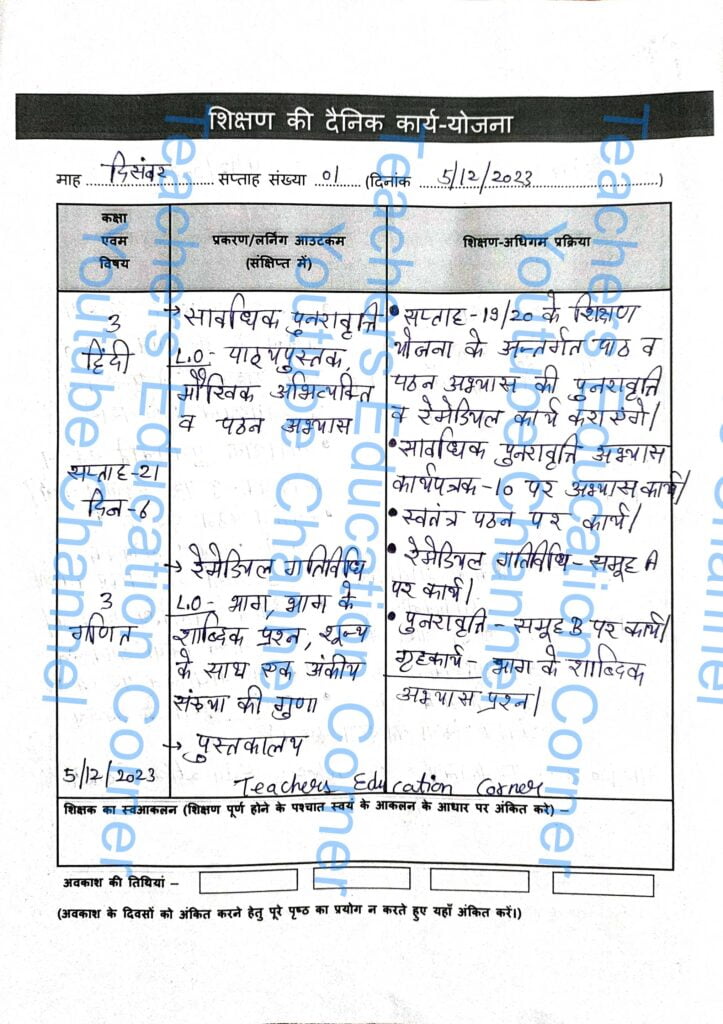 शिक्षण की दैनिक कार्य-योजना
माह दिसंबर सप्ताह संख्या 01 (दिनांक 5/12/2023)
कक्षा
एवम
विषय
प्रकरण/लर्निंग आउटकम
(संक्षिप्त में)
शिक्षण-अधिगम प्रक्रिया
3
हिंदी
सप्ताह-21
दिन-6
→ सावधिक पुनरावृत्ति
L.O- पाठ्यपुस्तक,
मौखिक अभिव्यक्ति
व पठन अभ्यास
• सप्ताह-19/20 के शिक्षण
योजना के अन्तर्गत पाठ व
पठन अभ्यास की पुनरावृत्ति
व रेमेडियल कार्य कराएंगे।
• सावधिक पुनरावृत्ति अभ्यास
कार्यपत्रक-10 पर अभ्यास कार्य।
• स्वतंत्र पठन पर कार्य।
3
गणित
→ रेमेडियल गतिविधि
L.O- भाग, भाग के
शाब्दिक प्रश्न, शून्य
के साथ एक अंकीय
संख्या की गुणा
→ पुस्तकालय
• रेमेडियल गतिविधि - समूह A
पर कार्य।
• पुनरावृत्ति - समूह B पर कार्य।
गृहकार्य - भाग के शाब्दिक
अभ्यास प्रश्न।
5/12/2023
Teachers Education Corner
शिक्षक का स्वआकलन (शिक्षण पूर्ण होने के पश्चात स्वयं के आकलन के आधार पर अंकित करे) –
अवकाश की तिथियां –
(अवकाश के दिवसों को अंकित करने हेतु पूरे पृष्ठ का प्रयोग न करते हुए यहाँ अंकित करें।)
Teachers Education Corner
Youtube Channel
Teachers Education Corner
Youtube Channel
Teachers Education Corner
Youtube Channel